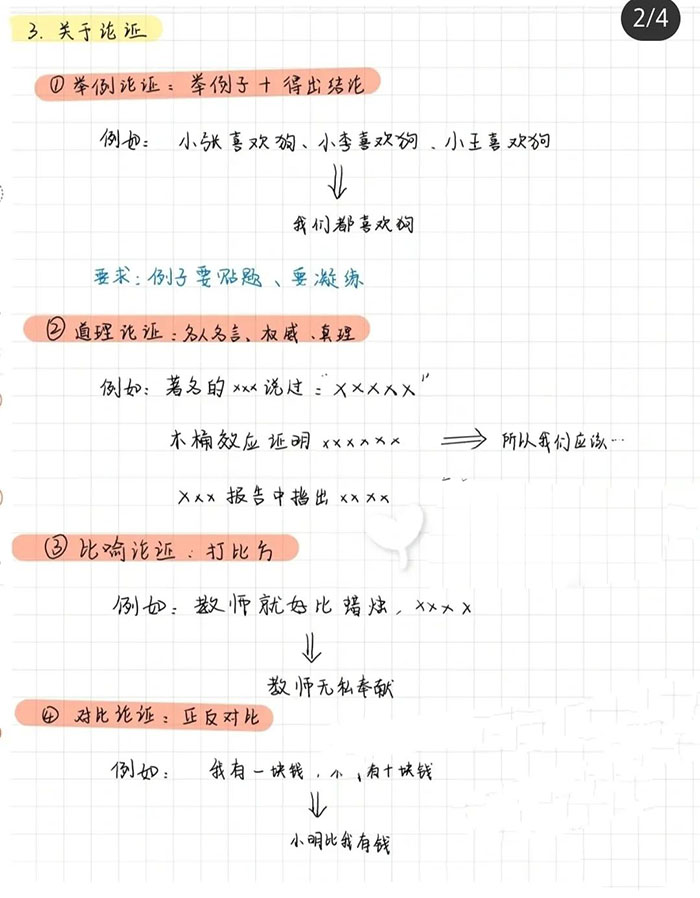 2/4
3. 关于论证
① 举例论证：举例子 + 得出结论
例如：小张喜欢狗、小李喜欢狗、小王喜欢狗
⇓
我们都喜欢狗
要求：例子要贴题、要凝练
② 道理论证：名人名言、权威、真理
例如：著名的xxx说过："xxxxx"
木桶效应证明xxxxxx ⇒ 所以我们应该…
xxx报告中指出xxxx
③ 比喻论证：打比方
例如：教师就好比蜡烛，xxxx
⇓
教师无私奉献
④ 对比论证：正反对比
例如：我有一块钱，小 有十块钱
⇓
小明比我有钱